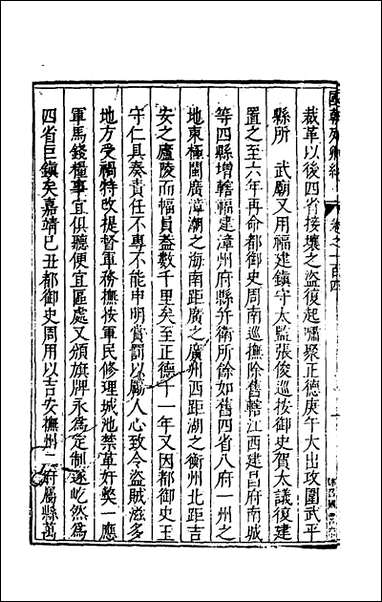 國朝列卿紀 卷之一百四
裁革以後四省接壤之盜復起嘯聚正德庚午大出攻圍武平
縣所 武廟又用福建鎮守太監張俊巡按御史賀太議復建
置之至六年再命都御史周南巡撫除舊轄江西建昌府南城
等四縣增轄福建漳州府縣并衛所餘如舊四省八府一州之
地東極閩廣漳潮之海南距廣之廣州西距湖之衡州北距吉
安之廬陵而幅員蓋數千里矣至正德十一年又因都御史王
守仁具奏責任不專不能申明賞罰以勵人心致令盜賊滋多
地方受禍特改提督軍務撫按軍民修理城池禁革奸獘一應
軍馬錢糧事宜俱聽便宜區處又頒旗牌永為定制遂屹然為
四省巨鎮矣嘉靖己丑都御史周用以吉安撫州二府屬縣萬